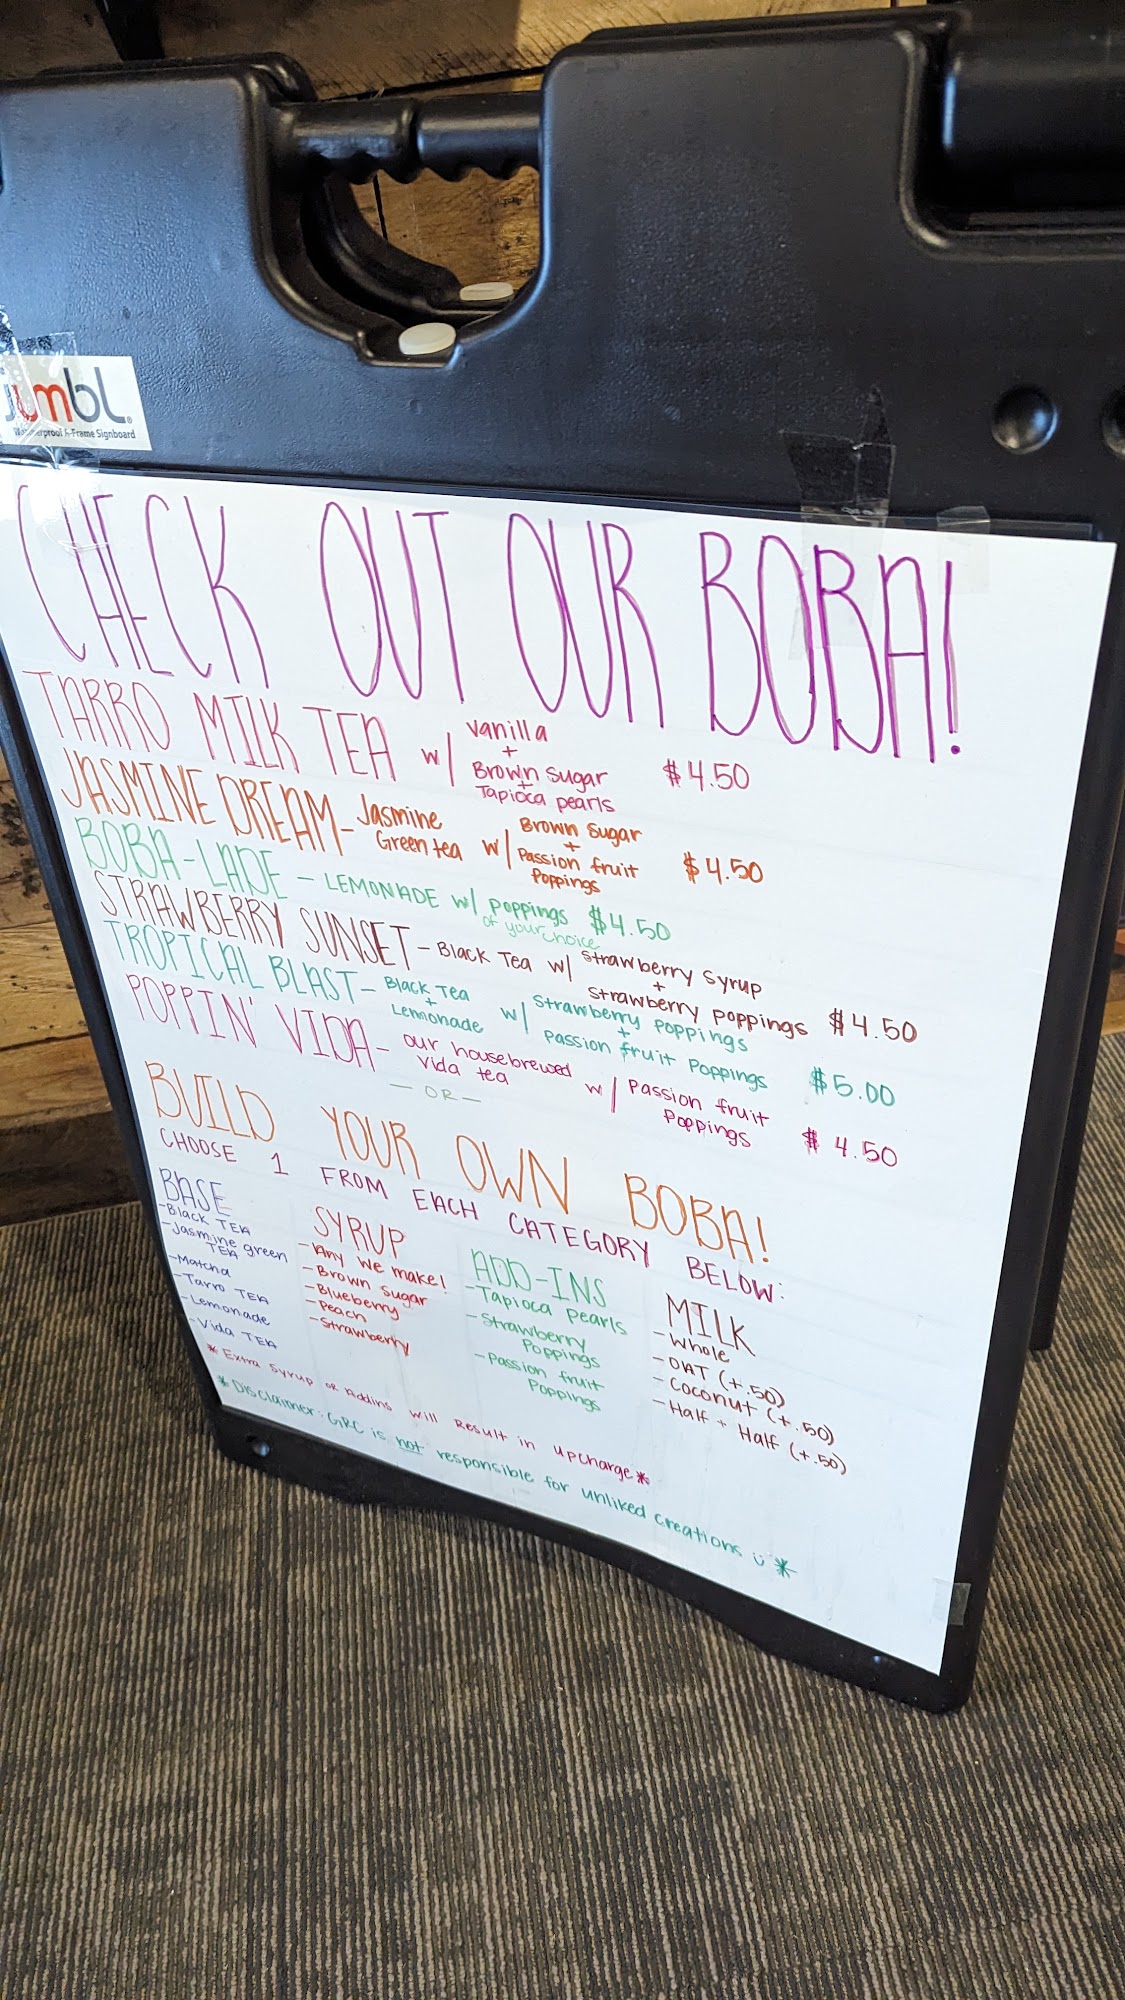 jumbl®
Weatherproof A-Frame Signboard
CHECK OUT OUR BOBA!
TARRO MILK TEA w/ vanilla + Brown sugar + Tapioca pearls $4.50
JASMINE DREAM - Jasmine Green tea w/ Brown Sugar + Passion fruit Poppings $4.50
BOBA-LADE - LEMONADE w/ poppings of your choice $4.50
STRAWBERRY SUNSET - Black Tea w/ strawberry syrup + strawberry poppings $4.50
TROPICAL BLAST - Black Tea + Lemonade w/ Strawberry poppings + Passion fruit Poppings $5.00
POPPIN' VIDA - our housebrewed Vida tea w/ Passion fruit Poppings $4.50
- OR -
BUILD YOUR OWN BOBA!
CHOOSE 1 FROM EACH CATEGORY BELOW:
BASE
- Black TEA
- Jasmine green TEA
- Matcha
- Tarro TEA
- Lemonade
- Vida TEA
SYRUP
- Any we make!
- Brown sugar
- Blueberry
- Peach
- Strawberry
ADD-INS
- Tapioca pearls
- Strawberry Poppings
- Passion fruit Poppings
MILK
- Whole
- OAT (+.50)
- Coconut (+.50)
- Half + Half (+.50)
* Extra Syrup or Addins will Result in upcharge *
* Disclaimer: GRC is not responsible for unliked creations *